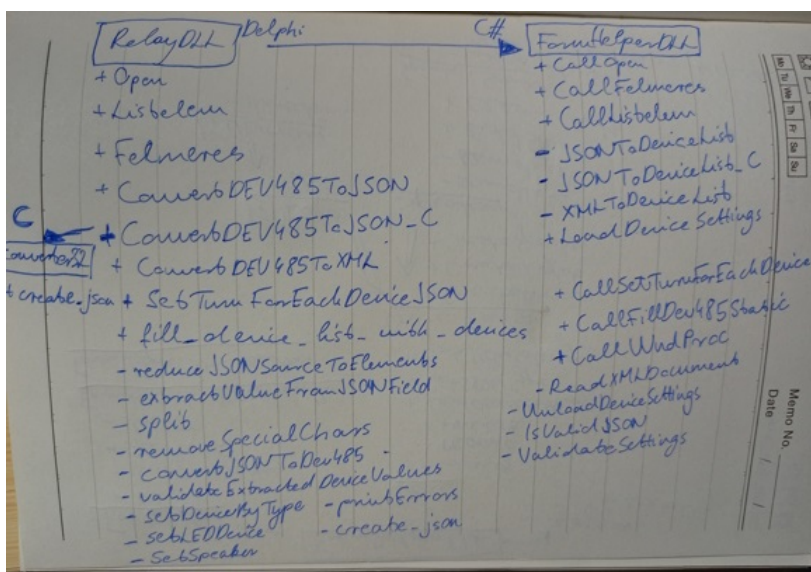 RelayDLL Delphi C# FormHelperDLL
+ Open
+ Listelem
+ Felmeres
+ ConvertDEV485ToJSON
C + ConvertDEV485ToJSON_C
converter32
+ create_json
+ ConvertDEV485ToXML
+ SetTurnForEachDeviceJSON
+ fill_device_list_with_devices
- reduceJSONSourceToElements
- extractValueFromJSONField
- split
- removeSpecialChars
- convertJSONToDev485
- validateExtractedDeviceValues
- setDeviceByType - printErrors
- setLEDDevice - create_json
- SetSpeaker
+ CallOpen
+ CallFelmeres
+ CallListelem
- JSONToDeviceList
- JSONToDeviceList_C
- XMLToDeviceList
+ LoadDeviceSettings
+ CallSetTurnForEachDevice
+ CallFillDev485Static
+ CallWndProc
- ReadXMLDocument
- UnloadDeviceSettings
- IsValidJSON
- ValidateSettings
Mo Tu We Th Fr Sa Su
Memo No.
Date / /